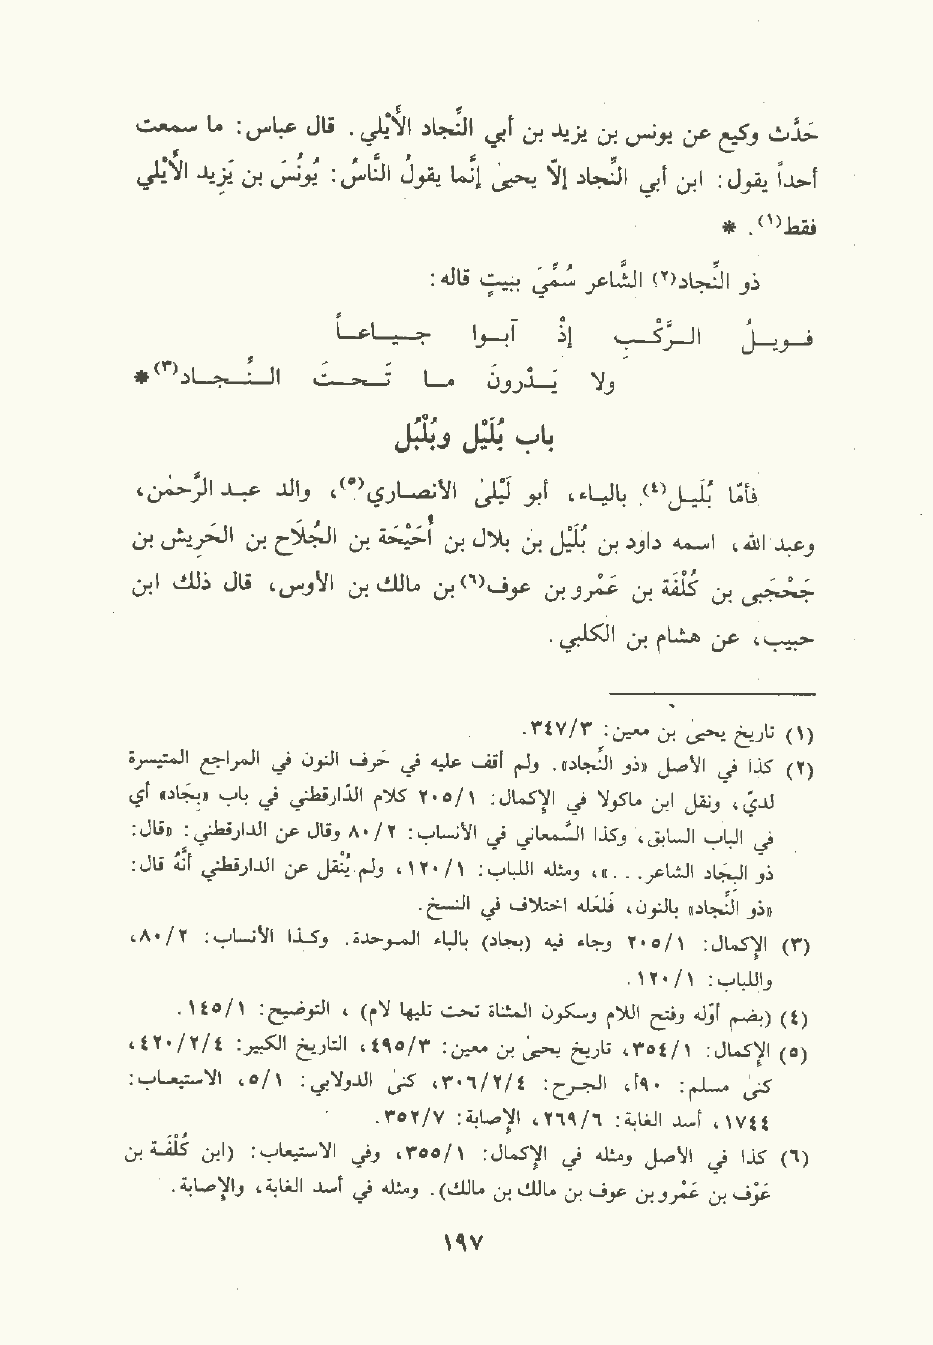 حَدَّث وكيع عن يونس بن يزيد بن أبي النَّجاد الأَيْلي. قال عباس: ما سمعت
أحداً يقول: ابن أبي النَّجاد إلاّ يحيىٰ إنَّما يقولُ النَّاسُ: يُونُسَ بن يَزِيد الأَيْلي
فقط(١). *
ذو النَّجاد(٢) الشَّاعر سُمِّيَ ببيتٍ قاله:
فــويــلُ الــرَّكْــبِ إذْ آبــوا جــيــاعــاً
ولا يَــدْرونَ مــا تَــحــتَ الــنُّــجــاد(٣)*
باب بُلَيْل وبُلْبُل
فأمّا بُلَيـل(٤)، باليـاء، أبو لَيْلىٰ الأنصـاري(٥)، والد عبـد الرَّحمٰن،
وعبد الله، اسمـه داود بن بُلَيْل بن بلال بن أُحَيْحَة بن الجُلَاح بن الحَرِيش بن
جَحْجَبىٰ بن كُلْفَة بن عَمْرو بن عوف(٦) بن مالك بن الأوس، قال ذلك ابن
حبيب، عن هشام بن الكلبي.
(١) تاريخ يحيىٰ بن معين: ٣٤٧/٣.
(٢) كذا في الأصل «ذو النُّجاد». ولم أقف عليه في حَرف النون في المراجع المتيسرة
لديّ، ونقل ابن ماكولا في الإكمال: ٢٠٥/١ كلام الدّارقطني في باب «بِجَاد» أي
في الباب السابق، وكذا السَّمعاني في الأنساب: ٨٠/٢ وقال عن الدارقطني: «قال:
ذو البِجَاد الشاعر. . .»، ومثله اللباب: ١٢٠/١، ولم يَنْقل عن الدارقطني أنَّهُ قال:
«ذو النَّجاد» بالنون، فَلَعَله اختلاف في النسخ.
(٣) الإكمال: ٢٠٥/١ وجاء فيه (بجاد) بالباء الموحدة. وكذا الأنساب: ٨٠/٢،
واللباب: ١٢٠/١.
(٤) (بضم أوّله وفتح اللام وسكون المثناة تحت تليها لام) ، التوضيح: ١٤٥/١.
(٥) الإكمال: ٣٥٤/١، تاريخ يحيىٰ بن معين: ٤٩٥/٣، التاريخ الكبير: ٤٢٠/٢/٤،
كنىٰ مسلم: ٩٠أ، الجرح: ٣٠٦/٢/٤، كنىٰ الدولابي: ٥/١، الاستيعاب:
١٧٤٤، أسد الغابة: ٢٦٩/٦، الإصابة: ٣٥٢/٧.
(٦) كذا في الأصل ومثله في الإكمال: ٣٥٥/١، وفي الاستيعاب: (ابن كُلْفَـة بن
عَوْف بن عَمْرو بن عوف بن مالك بن مالك). ومثله في أسد الغابة، والإصابة.
١٩٧